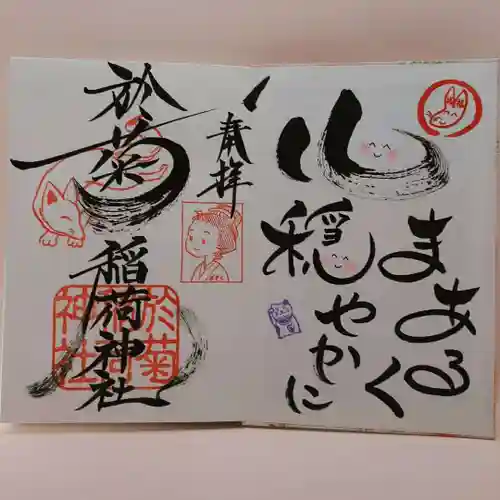 心
まあるく
穏やかに
奉拝
於菊
稲荷神社
於菊稲荷神社